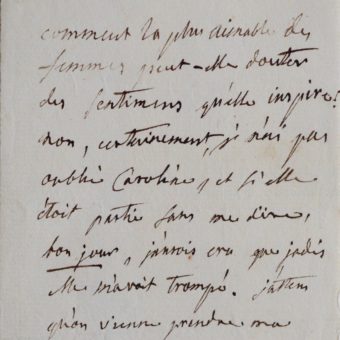 comment la plus aimable des
femmes peut-elle douter
des sentimens qu'elle inspire?
non, certainement, je n'ai pas
oublié Caroline, et si elle
étoit partie sans me dire,
bon jour, j'aurois cru que jadis
elle m'avoit trompé. j'attens
qu'on vienne prendre ma